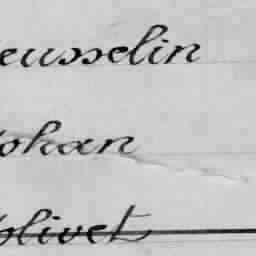 eusselin
ohan
olivet